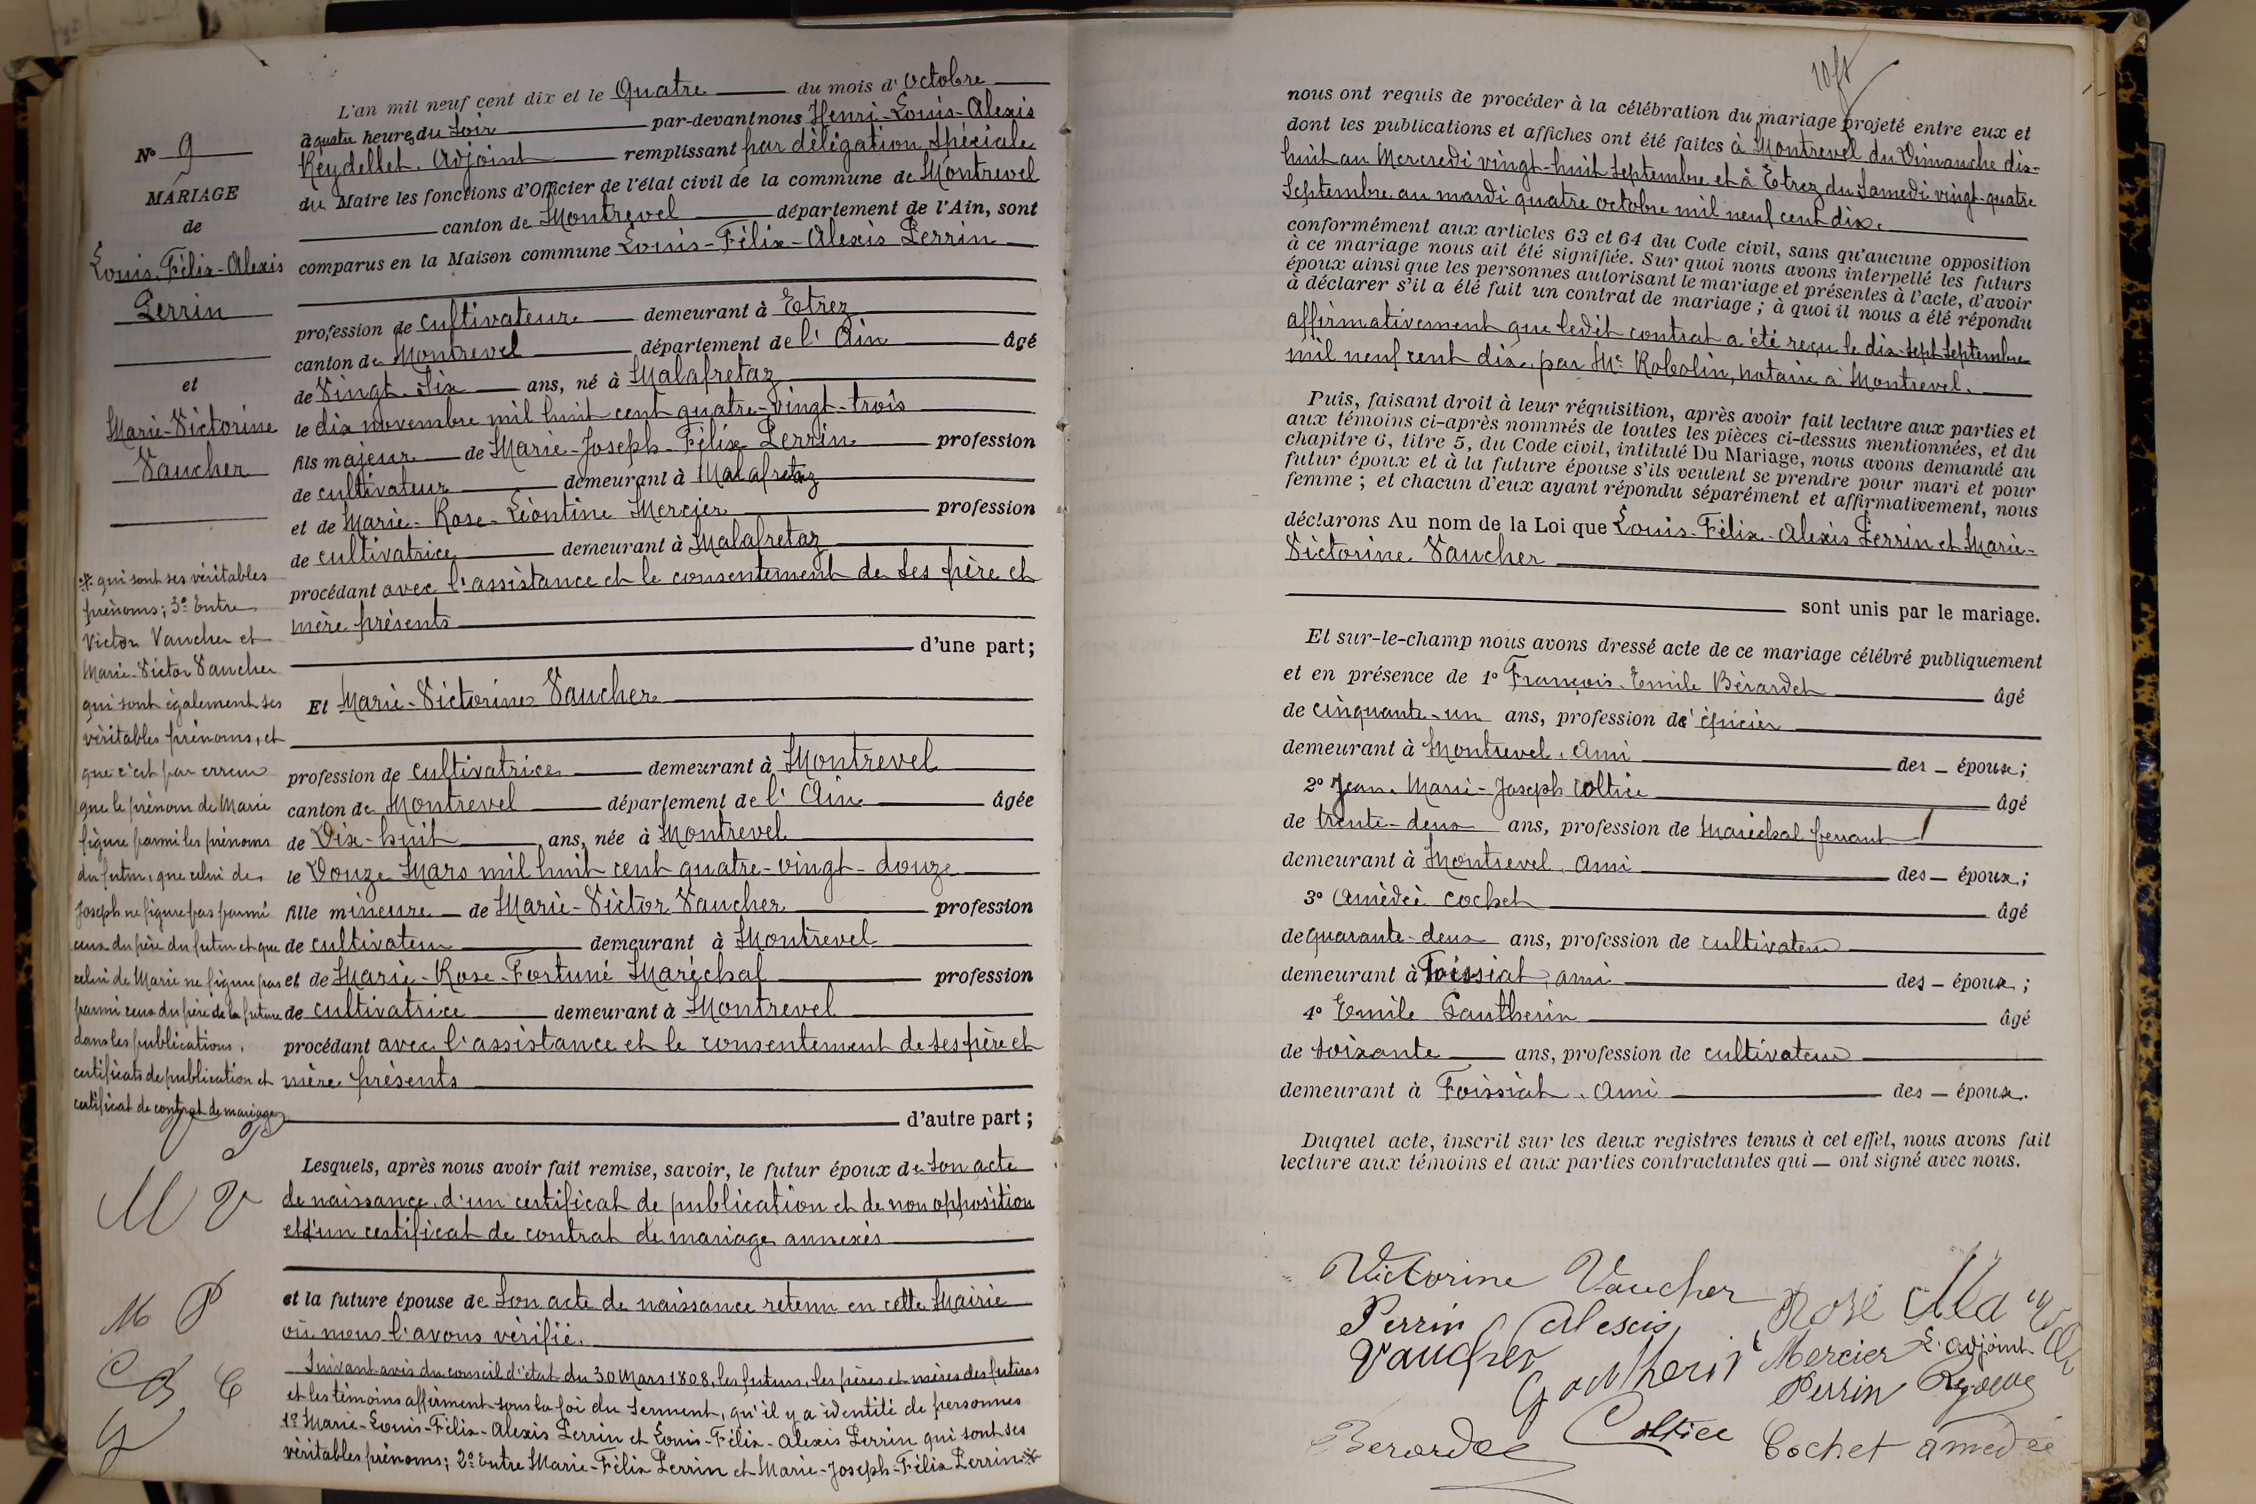 L'an mil neuf cent dix et le Quatre du mois d' Octobre
à quatre heures du soir par-devant nous Henri-Louis-Alexis
Reydellet. Adjoint remplissant par délégation spéciale
du Maire les fonctions d'Officier de l'état civil de la commune de Montrevel
canton de Montrevel département de l'Ain, sont
comparus en la Maison commune Louis-Félix-Alexis Perrin
profession de cultivateur demeurant à Etrez
canton de Montrevel département de l' Ain âgé
de Vingt-six ans, né à Malafretaz
le dix novembre mil huit cent quatre-vingt-trois
fils majeur de Marie-Joseph-Félix Perrin profession
de cultivateur demeurant à Malafretaz
et de Marie-Rose-Léontine Mercier profession
de cultivatrice demeurant à Malafretaz
procédant avec l'assistance et le consentement de ses père et
mère présents
d'une part;
Et Marie-Victorine Vaucher
profession de cultivatrice demeurant à Montrevel
canton de Montrevel département de l' Ain âgée
de Dix-huit ans, née à Montrevel
le Douze Mars mil huit cent quatre-vingt-douze
fille mineure de Marie-Victor Vaucher profession
de cultivateur demeurant à Montrevel
et de Marie-Rose-Fortuné Maréchal profession
de cultivatrice demeurant à Montrevel
procédant avec l'assistance et le consentement de ses père et
mère présents
d'autre part;
Lesquels, après nous avoir fait remise, savoir, le futur époux de son acte
de naissance, d'un certificat de publication et de non opposition
et d'un certificat de contrat de mariage annexés
et la future épouse de son acte de naissance retenu en cette Mairie
où nous l'avons vérifié.
Suivant avis du conseil d'état du 30 Mars 1808, les futurs, les pères et mères des futurs
et les témoins affirment sous la foi du serment, qu'il y a identité de personnes
1º Marie-Louis-Félix-Alexis Perrin et Louis-Félix-Alexis Perrin qui sont ses
véritables prénoms; 2º Entre Marie-Félix Perrin et Marie-Joseph-Félix Perrin※
Nº 9
MARIAGE
de
Louis-Félix-Alexis
Perrin
et
Marie-Victorine
Vaucher
※ qui sont ses véritables
prénoms; 3º Entre
Victor Vaucher et
Marie-Victor Vaucher
qui sont également ses
véritables prénoms, et
que c'est par erreur
que le prénom de Marie
figure parmi les prénoms
du futur, que celui de
Joseph ne figure pas parmi
ceux du père du futur et que
celui de Marie ne figure pas
parmi ceux du père de la future
dans les publications,
certificats de publication et
certificat de contrat de mariage
M V
M P
nous ont requis de procéder à la célébration du mariage projeté entre eux et
dont les publications et affiches ont été faites à Montrevel du Dimanche dix-
huit au Mercredi vingt-huit septembre et à Etrez du Samedi vingt-quatre
septembre au mardi quatre octobre mil neuf cent dix.
conformément aux articles 63 et 64 du Code civil, sans qu'aucune opposition
à ce mariage nous ait été signifiée. Sur quoi nous avons interpellé les futurs
époux ainsi que les personnes autorisant le mariage et présentes à l'acte, d'avoir
à déclarer s'il a été fait un contrat de mariage; à quoi il nous a été répondu
affirmativement que ledit contrat a été reçu le dix-sept septembre
mil neuf cent dix, par Mᵉ Robolin, notaire à Montrevel.
Puis, faisant droit à leur réquisition, après avoir fait lecture aux parties et
aux témoins ci-après nommés de toutes les pièces ci-dessus mentionnées, et du
chapitre 6, titre 5, du Code civil, intitulé Du Mariage, nous avons demandé au
futur époux et à la future épouse s'ils veulent se prendre pour mari et pour
femme; et chacun d'eux ayant répondu séparément et affirmativement, nous
déclarons Au nom de la Loi que Louis-Félix-Alexis Perrin et Marie-
Victorine Vaucher
sont unis par le mariage.
Et sur-le-champ nous avons dressé acte de ce mariage célébré publiquement
et en présence de 1º François-Emile Bérardet âgé
de cinquante-un ans, profession d'épicier
demeurant à Montrevel, ami des époux;
2º Jean-Marie-Joseph Coltice âgé
de trente-deux ans, profession de Maréchal ferrant
demeurant à Montrevel, ami des époux;
3º Amédée Cochet âgé
de quarante-deux ans, profession de cultivateur
demeurant à Foissiat, ami des époux;
4º Emile Gautherin âgé
de soixante ans, profession de cultivateur
demeurant à Foissiat, ami des époux.
Duquel acte, inscrit sur les deux registres tenus à cet effet, nous avons fait
lecture aux témoins et aux parties contractantes qui ont signé avec nous.
Victorine Vaucher
Perrin Alexis
Rose
Vaucher
Gautherin
Mercier
L'adjoint
Perrin
Berardet
Coltice
Cochet amédée